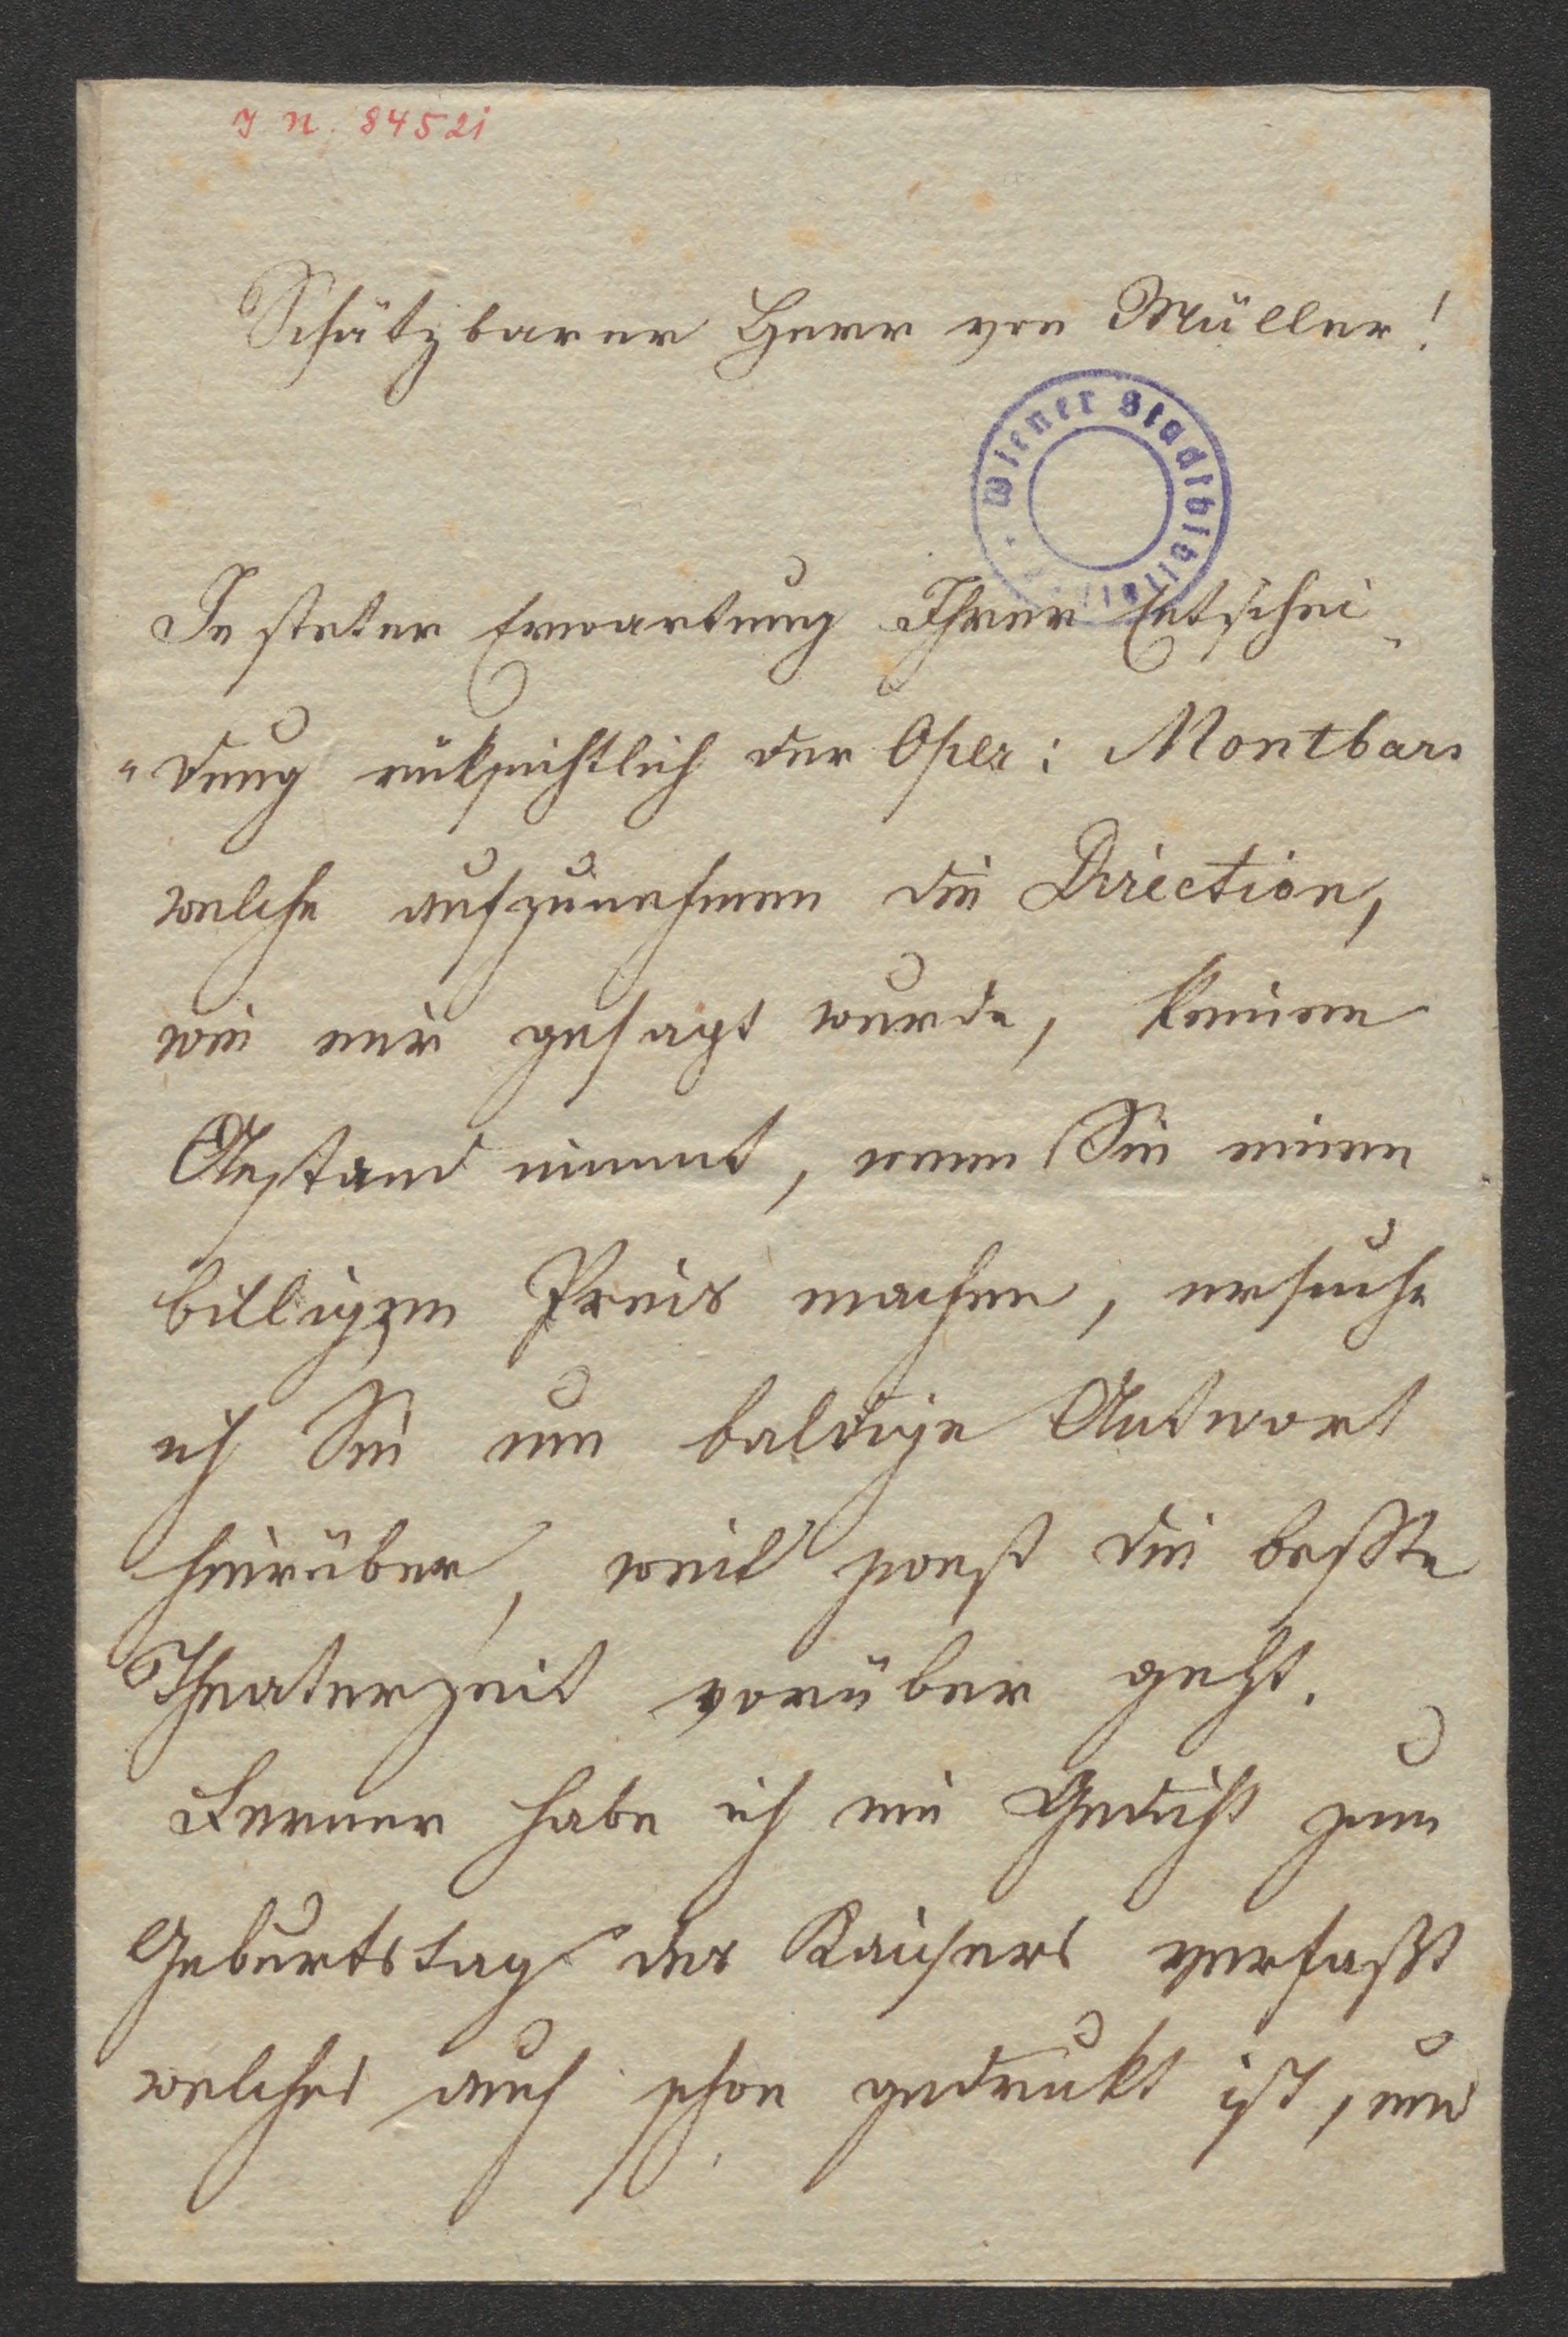 I N. 84521
Schätzbarer Herr von Müller!
Wiener Stadtbibliothek
In steter Erwartung Ihrer Entschei„
„dung rüksichtlich der Oper: Montbars
welche aufzunehmen die Direction,
wie mir gesagt wurde, keinen
Anstand nimmt, wenn Sie einen
billigen Preis machen, ersuche
ich Sie um baldige Antwort
hierüber, weil sonst die besste
Theaterzeit vorüber geht.
Ferner habe ich ein Gedicht zum
Geburtstag des Kaisers verfasst
welches auch schon gedrukt ist, und